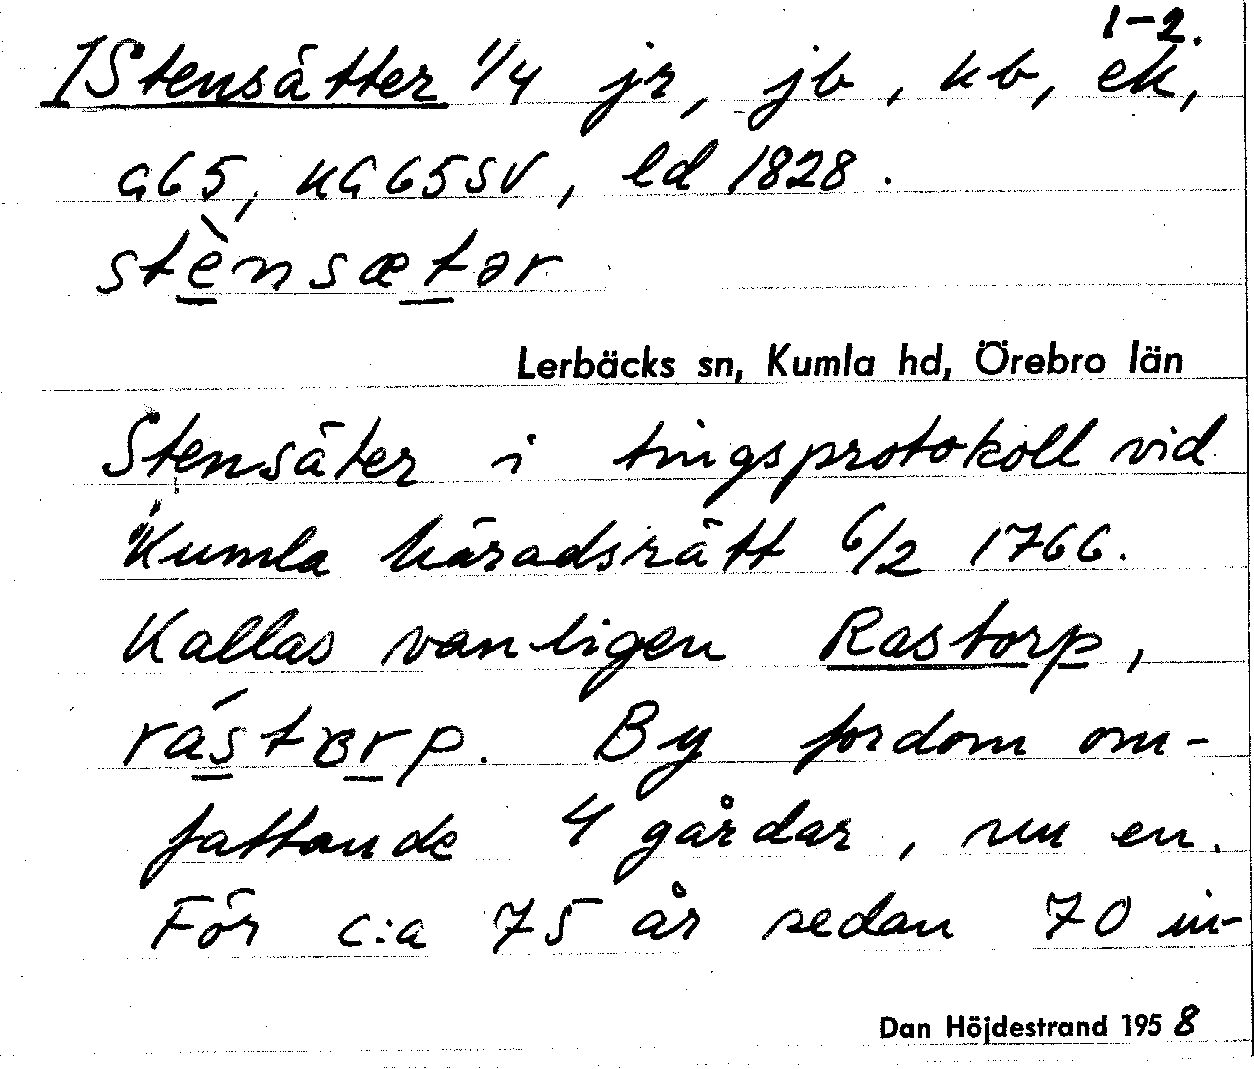 1-2.
1 Stensätter 1/4 jr, jb, kb, ek,
G65, HG65SV, ld 1828.
stènsætər
Lerbäcks sn, Kumla hd, Örebro län
Stensäter i tingsprotokoll vid
Kumla häradsrätt 6/2 1766.
Kallas vanligen Rastorp,
rástɒrp. By fordom om-
fattande 4 gårdar, nu en.
För c:a 75 år sedan 70 in-
Dan Höjdestrand 1958